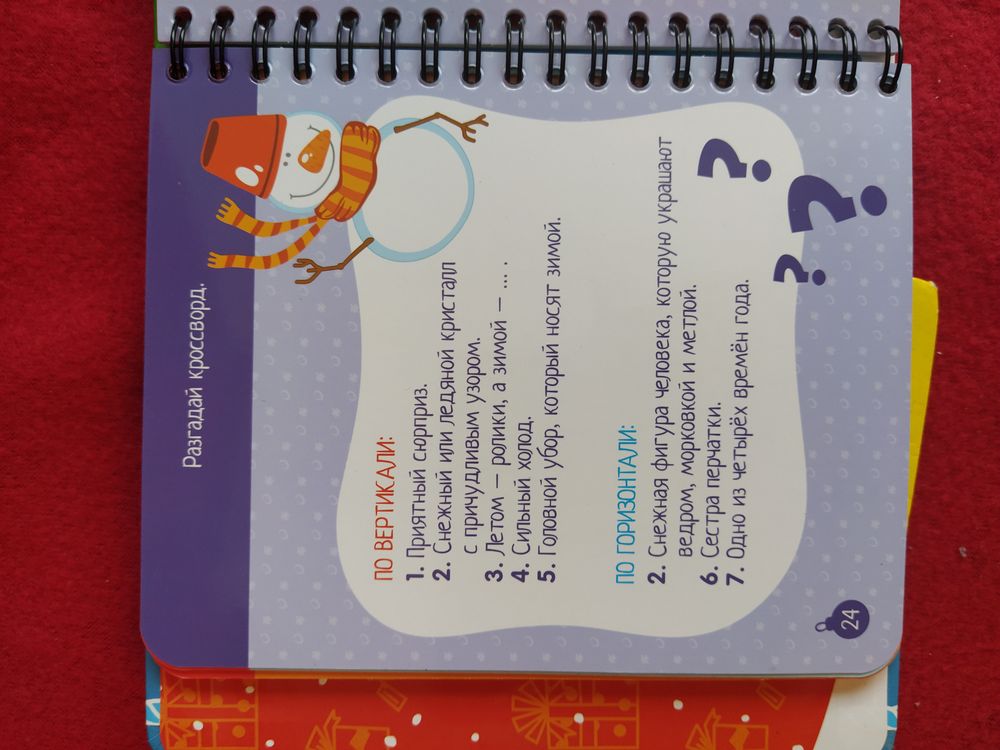 Разгадай кроссворд.
ПО ВЕРТИКАЛИ:
1. Приятный сюрприз.
2. Снежный или ледяной кристалл
с причудливым узором.
3. Летом — ролики, а зимой — ... .
4. Сильный холод.
5. Головной убор, который носят зимой.
ПО ГОРИЗОНТАЛИ:
2. Снежная фигура человека, которую украшают
ведром, морковкой и метлой.
6. Сестра перчатки.
7. Одно из четырёх времён года.
? ? ?
24